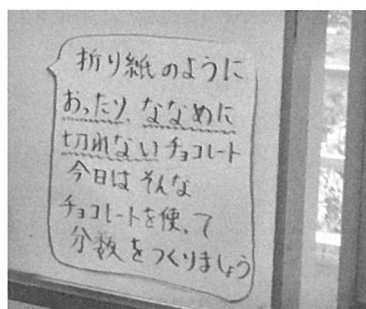 折り紙のように
おったり、ななめに
切れないチョコレート
今日はそんな
チョコレートを使って
分数をつくりましょう